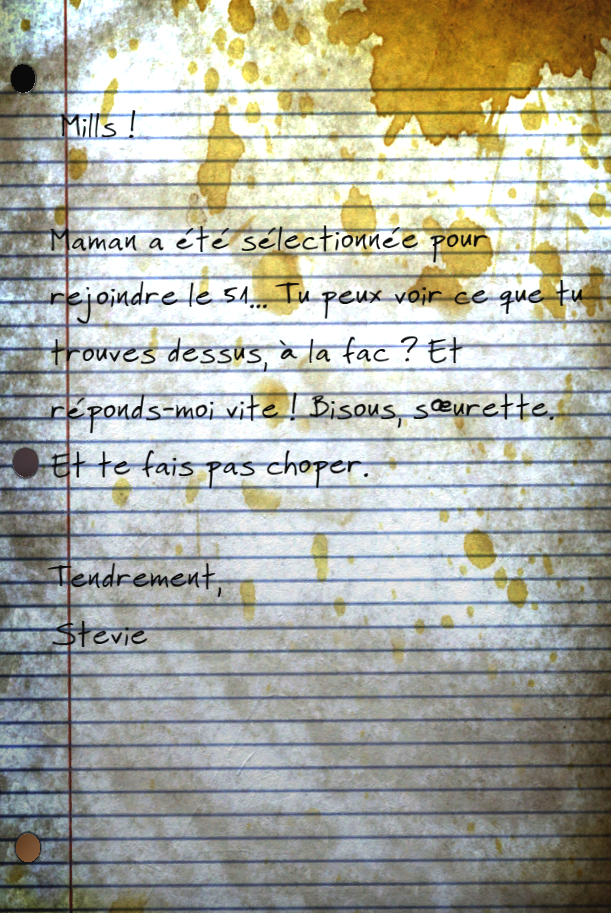 Mills !
Maman a été sélectionnée pour
rejoindre le 51... Tu peux voir ce que tu
trouves dessus, à la fac ? Et
réponds-moi vite ! Bisous, sœurette.
Et te fais pas choper.
Tendrement,
Stevie